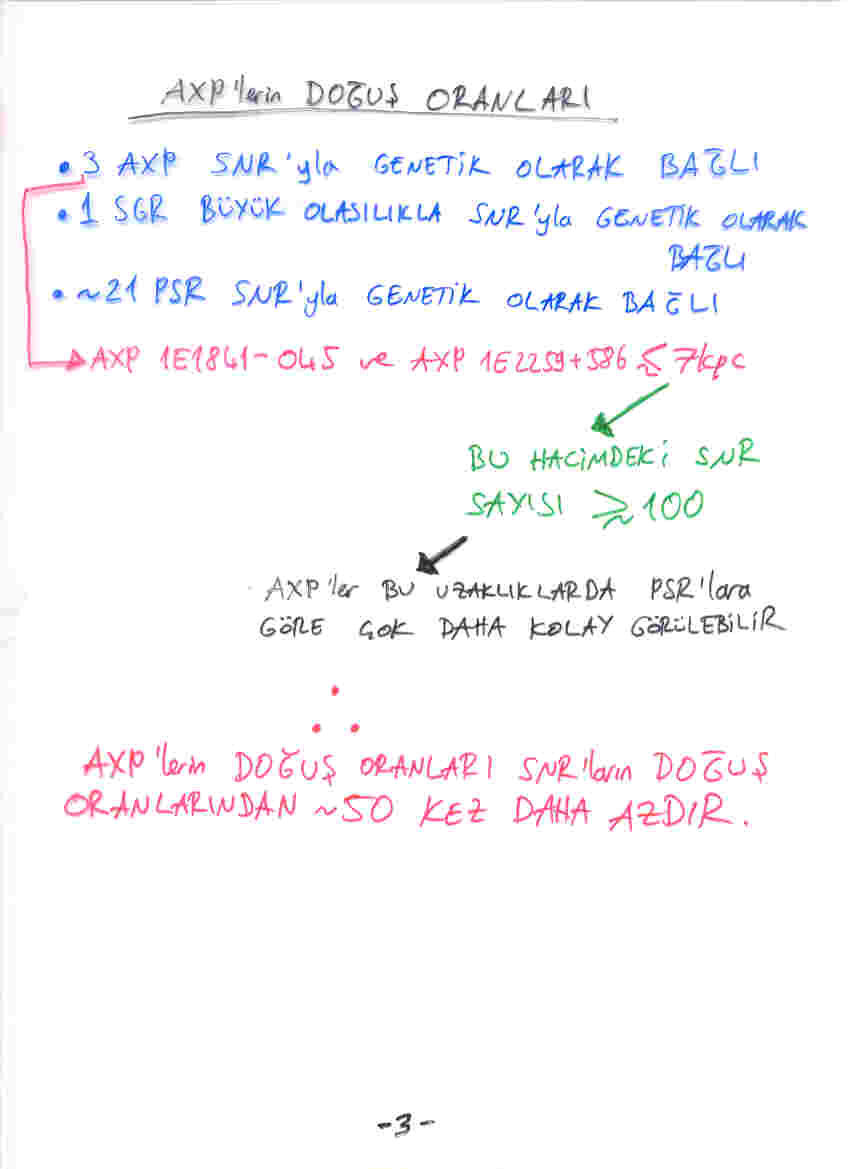 AXP'lerin DOĞUŞ ORANLARI
• 3 AXP SNR'yla GENETİK OLARAK BAĞLI
• 1 SGR BÜYÜK OLASILIKLA SNR'yla GENETİK OLARAK
BAĞLI
• ~21 PSR SNR'yla GENETİK OLARAK BAĞLI
AXP 1E1841-045 ve AXP 1E2259+586 ≲ 7kpc
BU HACİMDEKİ SNR
SAYISI ≳ 100
AXP'ler BU UZAKLIKLARDA PSR'lara
GÖRE ÇOK DAHA KOLAY GÖRÜLEBİLİR
∴
AXP'lerin DOĞUŞ ORANLARI SNR'ların DOĞUŞ
ORANLARINDAN ~50 KEZ DAHA AZDIR.
-3-